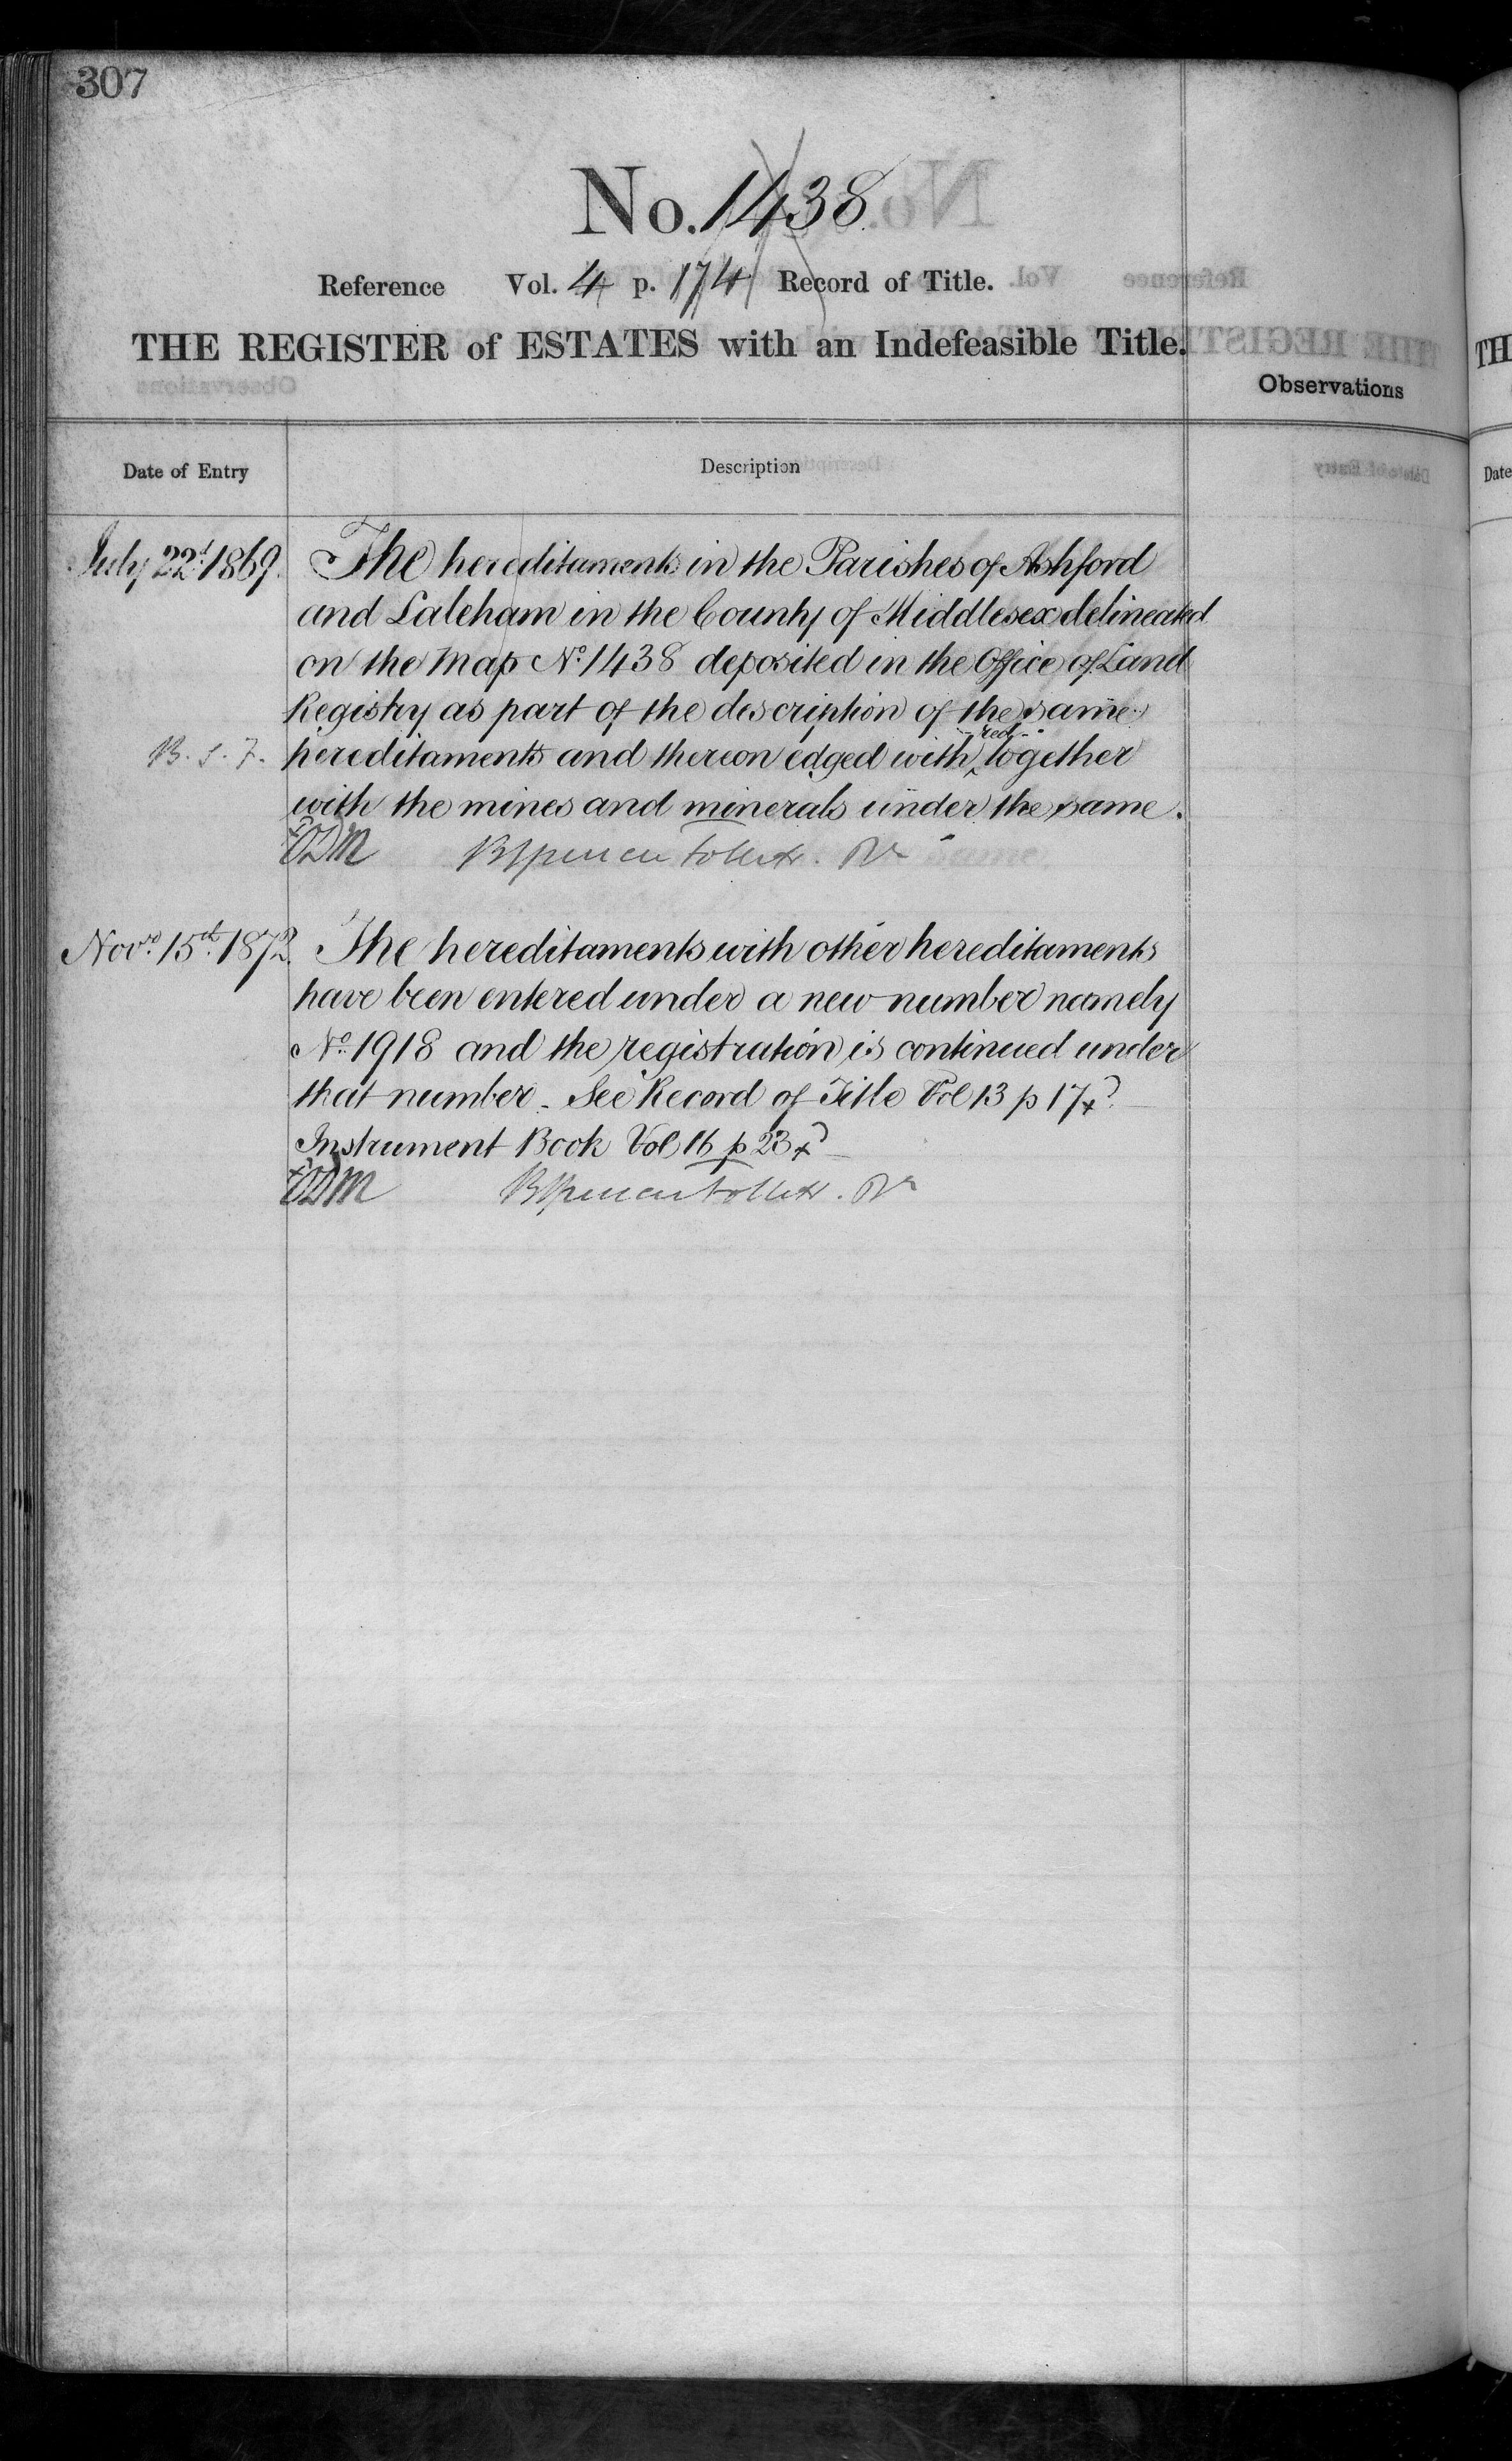 307
No. 1438
Reference Vol. 4 p. 174 Record of Title.
THE REGISTER of ESTATES with an Indefeasible Title.
Observations
Date of Entry Description
July 22d. 1869. The hereditaments in the Parishes of Ashford
and Laleham in the County of Middlesex delineated
on the Map No. 1438 deposited in the Office of Land
Registry as part of the description of the same
B. S. F. hereditaments and thereon edged with red together
with the mines and minerals under the same.
Novr. 15th. 1872. The hereditaments with other hereditaments
have been entered under a new number namely
No. 1918 and the registration is continued under
that number - See Record of Title Vol 13 p 17
Instrument Book Vol 16 p 23
TH
Date